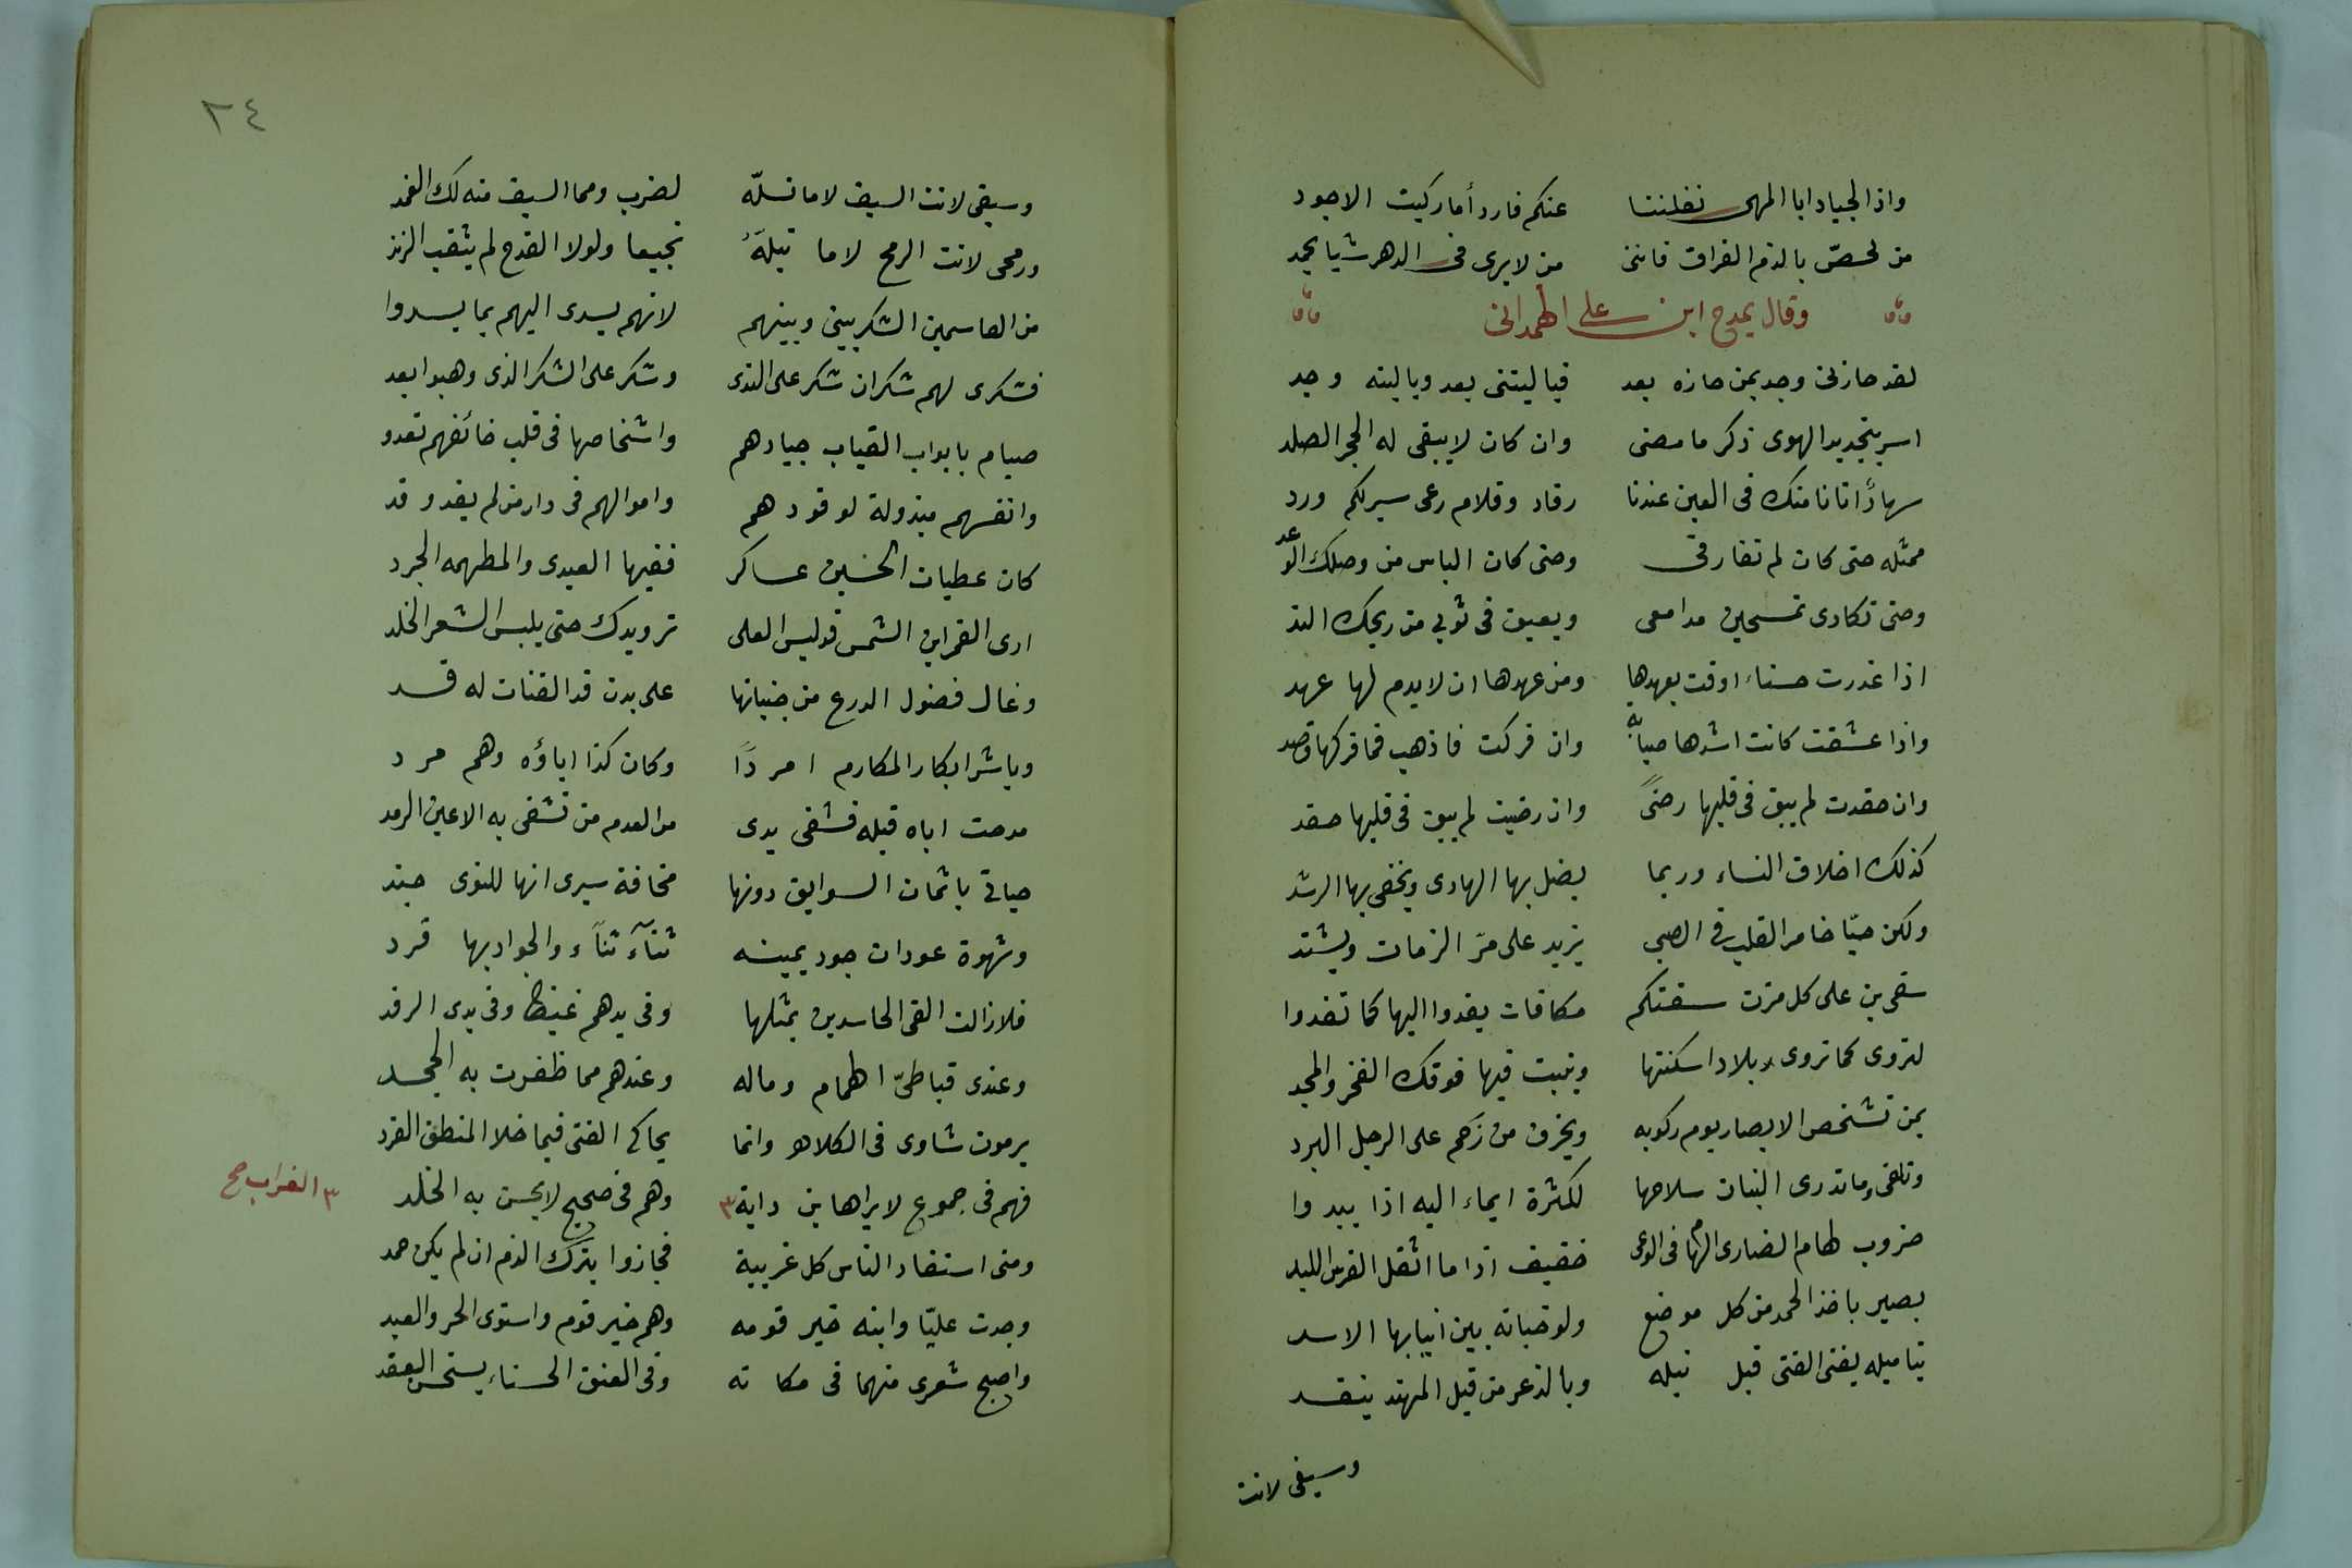 واذا الجياد ابا المهى نقلننا عنكم فاردأ ما ركبت الاجود
من لخصّ بالذم الفراق فاننى من لا يرى فى الدهر شيا يحمد
وقال يمدح ابن على الهمدانى
لقد حازنى وجد بمن حازه بعد فياليتنى بعد وياليته وجد
اسر بتجديد الهوى ذكر ما مضى وان كان لا يبقى له الحجر الصلد
سهادٌ اتانا منك فى العين عندنا رقاد وقلام رعى سيركم ورد
ممثله حتى كان لم تفارقى وحتى كان الياس من وصلك الوعد
وحتى تكادى تمسحين مدامعى ويعبق فى ثوبي من ريحك الند
اذا غدرت حسناء اوفت بعهدها ومن عهدها ان لا يدم لها عهد
واذا عشقت كانت اشدها صبابة وان فركت فاذهب فما فركها قصد
وان حقدت لم يبق فى قلبها رضىً وان رضيت لم يبق فى قلبها حقد
كذلك اخلاق النساء وربما يضل بها الهادى ويخفى بها الرشد
ولكن حبّا خامر القلب في الصبى يزيد على مرّ الزمان ويشتد
سقى بن على كل مزن سقتكم مكافات يغدوا اليها كما تغدوا
لتروى كما تروى بلادا سكنتها وينبت فيها فوقك الفخر والمجد
بمن تشخص الابصار يوم ركوبه ويخرق من زحم على الرجل البرد
وتلقى وما تدرى البنان سلاحها لكثرة ايماء اليه اذا يبدوا
ضروب لهام الضارى الهام فى الوغى خفيف اذا ما اثقل الفرس اللبد
بصير باخذ الحمد من كل موضع ولو خباته بين انيابها الاسد
بتاميله يغنى الفتى قبل نيله وبالذعر من قبل المهند ينقد
وسيفى لانت
٢٤
وسيفى لانت السيف لا ما تسلّه لضرب ومما السيف منه لك الغمد
ورمحى لانت الرمح لا ما تبلهُ نجيعا ولولا القدح لم يثقب الزند
من القاسمين الشكر بينى وبينهم لانهم يسدى اليهم بما يسدوا
فشكرى لهم شكران شكر على الندى وشكر على الشكر الذى وهبوا بعد
صيام بابواب القباب جيادهم واشخاصها فى قلب خائفهم تعدو
وانفسهم مبذولة لوفودهم واموالهم فى دار من لم يفد وفد
كان عطيات الحسين عساكر ففيها العبدى والمطهمه الجرد
ارى القمر ابن الشمس قد لبس العلى ترويدك حتى يلبس الشعر الخلد
وغال فضول الدرع من جنباتها على بدن قد القنات له قد
وباشر ابكار المكارم امردًا وكان كذا اباؤه وهم مرد
مدحت اباه قبله فشفى يدى من العدم من تشفى به الاعين الرمد
حباني باثمان السوابق دونها مخافة سيرى انها للنوى جند
وشهوة عودان جود يمينه ثناءٌ ثناء والجواد بها فرد
فلا زالت القى الحاسدين بمثلها وفى يدهم غيظ وفى يدى الرفد
وعندى قباطىّ الهمام وماله وعندهم مما ظفرت به الجحد
يرمون شاوى فى الكلام وانما يحاكى الفتى فيما خلا المنطق القرد
فهم فى جموع لا يراها بن داية ٣ وهم فى ضجيج لا يحسن به الخلد
٣ الغراب صح
ومنى استفاد الناس كل غريبة فجازوا بترك الذم ان لم يكن حمد
وجدت عليّا وابنه خير قومه وهم خير قوم واستوى الحر والعبد
واصبح شعرى منهما فى مكانه وفى العنق الحسناء يستحسن العقد